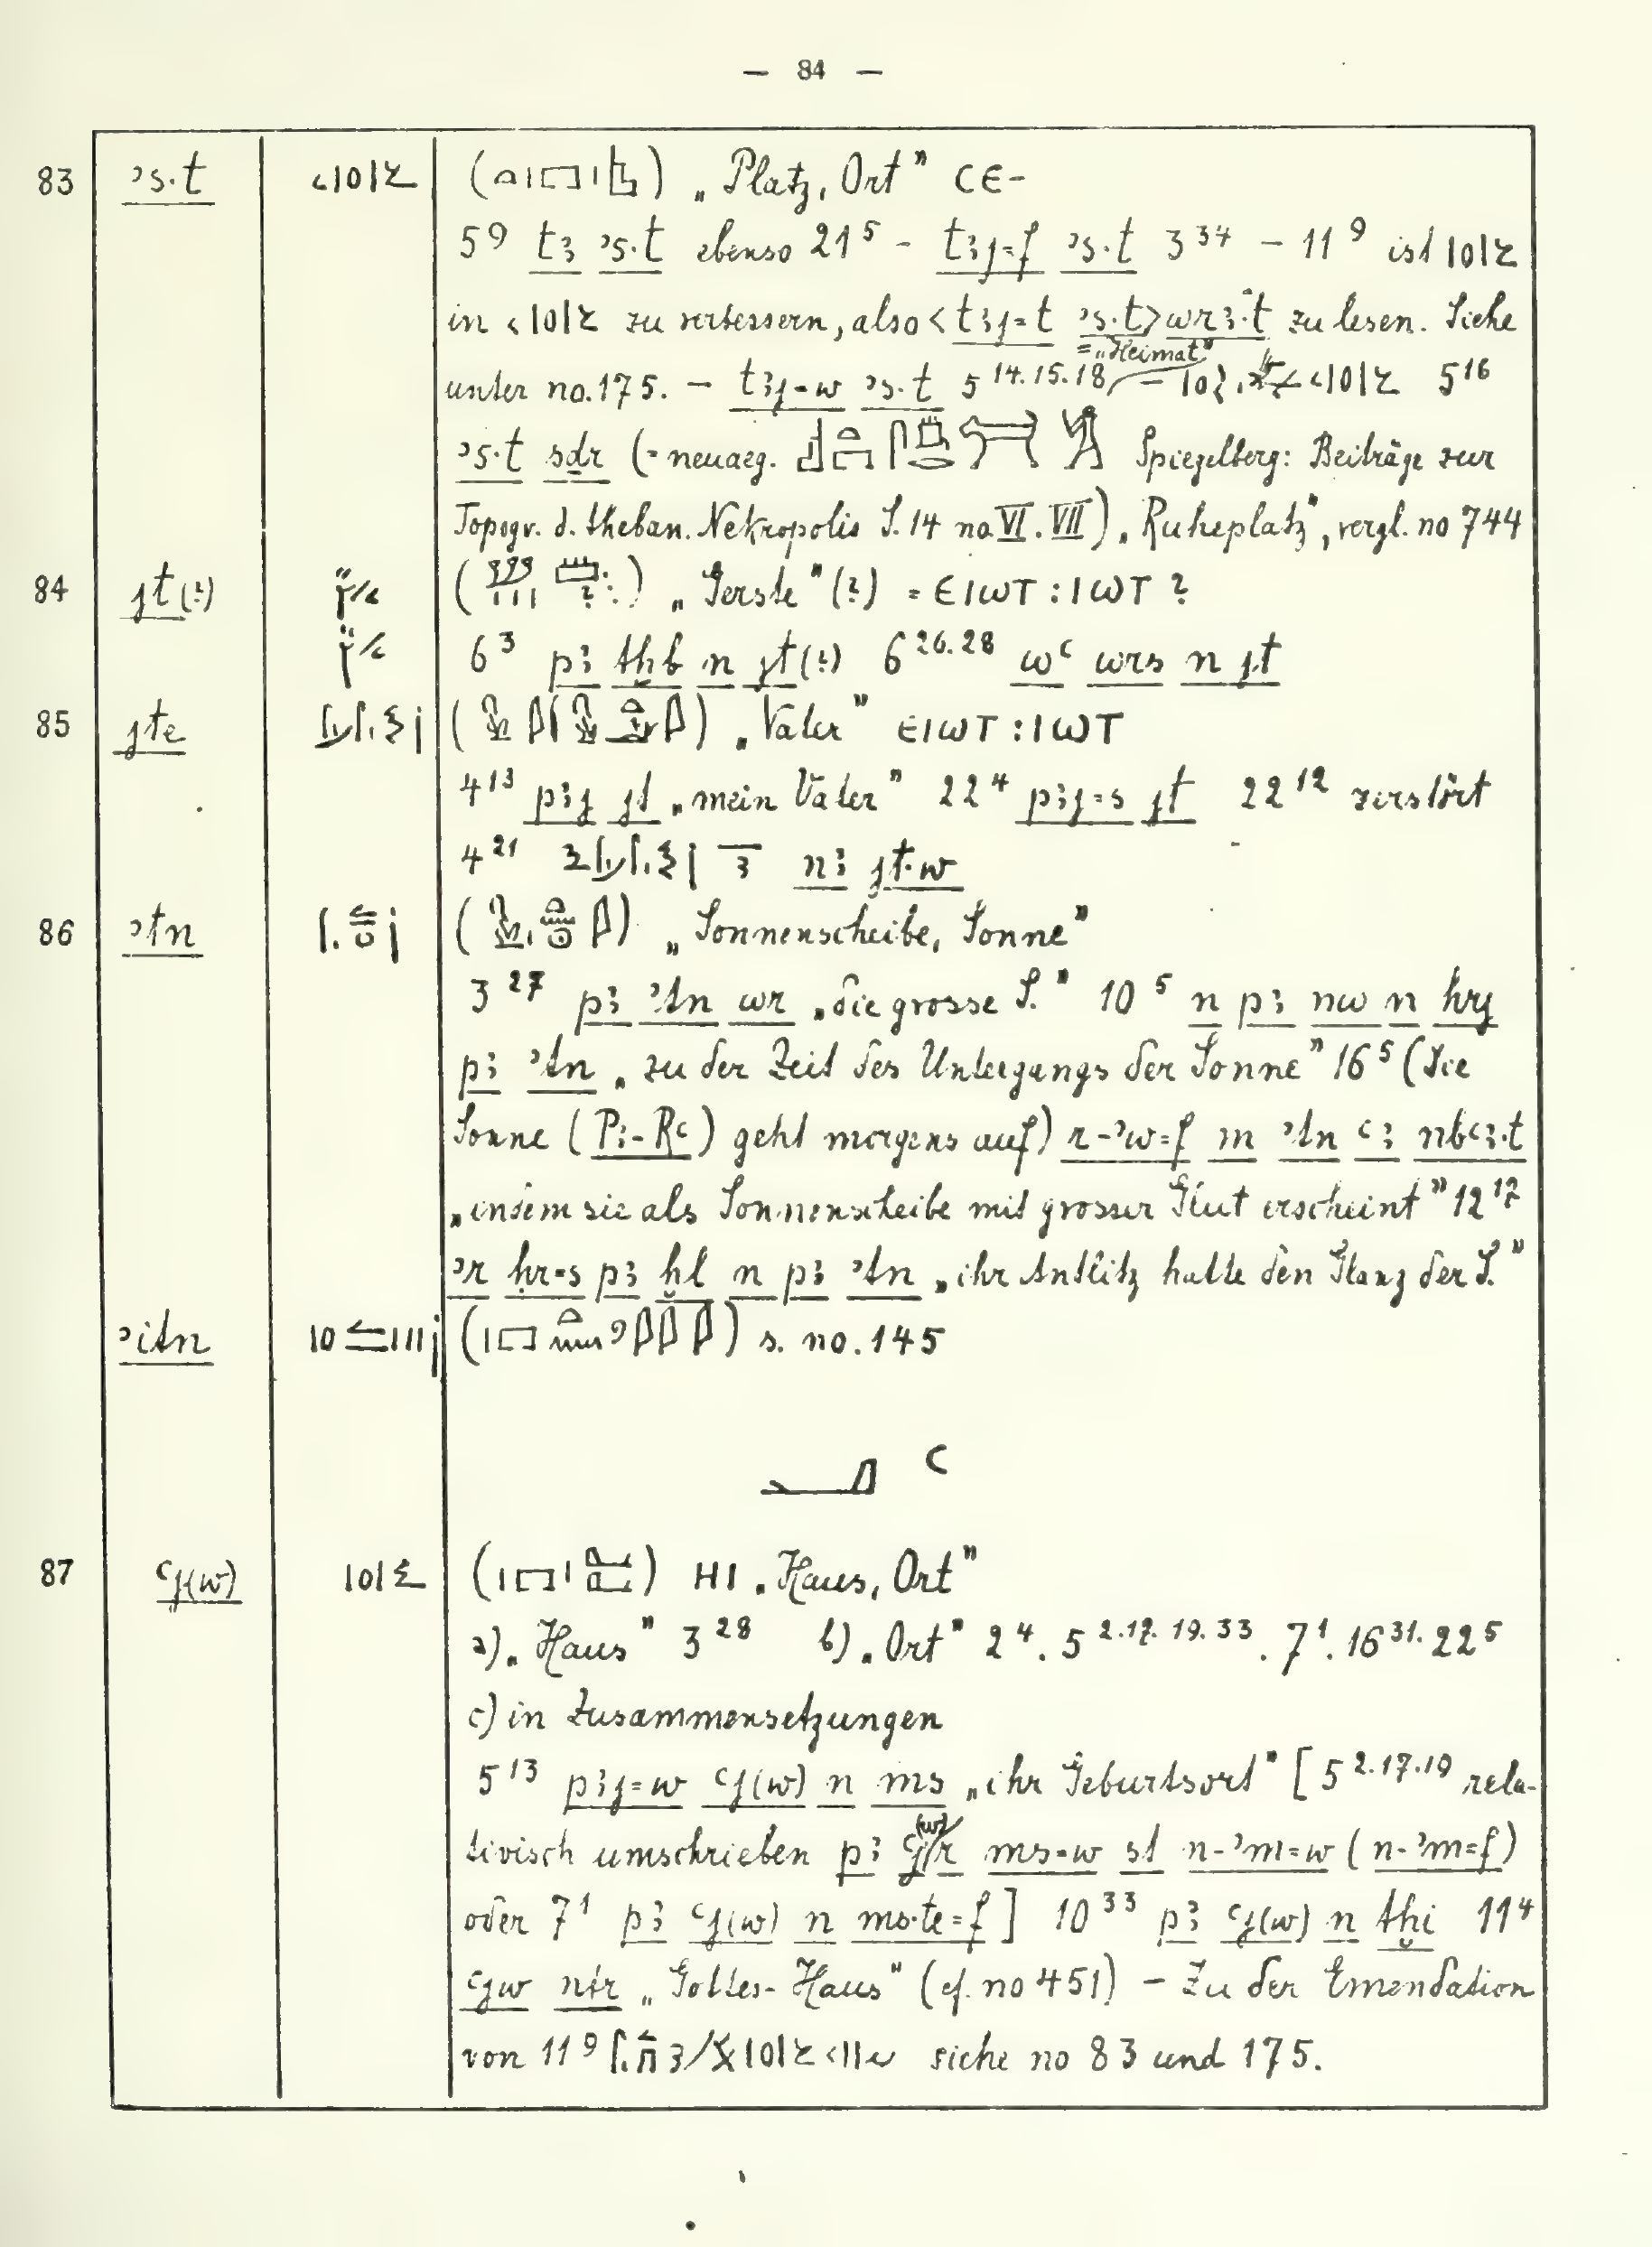 — 84 —
83 ꜥs.t ( ) „Platz, Ort" ⲤⲈ-
5⁹ tꜣ ʾs.t ebenso 21⁵ - tꜣj=f ʾs.t 3³⁴ - 11⁹ ist
in zu verbessern, also <tꜣj=t ʾs.t> wrꜣ.t zu lesen. Siehe
unter no. 175. - tꜣj=w ʾs.t 5¹⁴·¹⁵·¹⁸ = „Heimat" - 5¹⁶
ʾs.t sdr (= neuaeg. Spiegelberg: Beiträge zur
Topogr. d. theban. Nekropolis S. 14 no VI. VII) „Ruheplatz", vergl. no 744
84 jt(?) ( ) „Gerste" (?) = ⲈⲒⲰⲦ : ⲒⲰⲦ ?
6³ pꜣ tḫb n jt(?) 6²⁶·²⁸ wꜥ wrs n jt
85 jte ( ) „Vater" ⲈⲒⲰⲦ : ⲒⲰⲦ
4¹³ pꜣj jt „mein Vater" 22⁴ pꜣj=s jt 22¹² zerstört
4²¹ nꜣ jt.w
86 ʾtn ( ) „Sonnenscheibe, Sonne"
3²⁷ pꜣ ʾtn wr „die grosse S." 10⁵ n pꜣ nw n hrj
pꜣ ʾtn „zu der Zeit des Untergangs der Sonne" 16⁵ (die
Sonne (Pꜣ-Rꜥ) geht morgens auf) r-ʾw=f m ʾtn ꜥꜣ nbꜥꜣ.t
„indem sie als Sonnenscheibe mit grosser Glut erscheint" 12¹⁷
ʾr ḥr=s pꜣ ḫl n pꜣ ʾtn „ihr Antlitz hatte den Glanz der S."
ʾitn ( ) s. no. 145
ꜥ
87 ꜥj(w) ( ) ⲎⲒ „Haus, Ort"
a) „Haus" 3²⁸ b) „Ort" 2⁴. 5²·¹⁷·¹⁹·³³. 7¹. 16³¹. 22⁵
c) in Zusammensetzungen
5¹³ pꜣj=w ꜥj(w) n ms „ihr Geburtsort" [5²·¹⁷·¹⁹ rela-
tivisch umschrieben pꜣ ꜥj(w) r ms=w st n-ʾm=w (n-ʾm=f)
oder 7¹ pꜣ ꜥj(w) n ms.te=f] 10³³ pꜣ ꜥj(w) n tḫi 11⁴
ꜥjw ntr „Gottes-Haus" (cf. no 451) - Zu der Emendation
von 11⁹ siehe no 83 und 175.